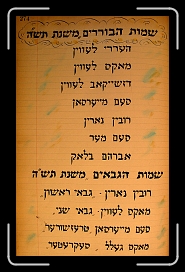 שמות הבוררים משנת תש"ה
הערי לעווין
מאקס לעווין
דזשייקאב לעווין
סעם מייערסאן
רובין גארין
סעם מער
אברהם בלאק
שמות הגבאים משנת תש"ה
רובין גארין גבאי ראשון
מאקס לעווין גבאי שני
סעם מייערסאן טרעזשורער
מאקס געלל סעקרעטער